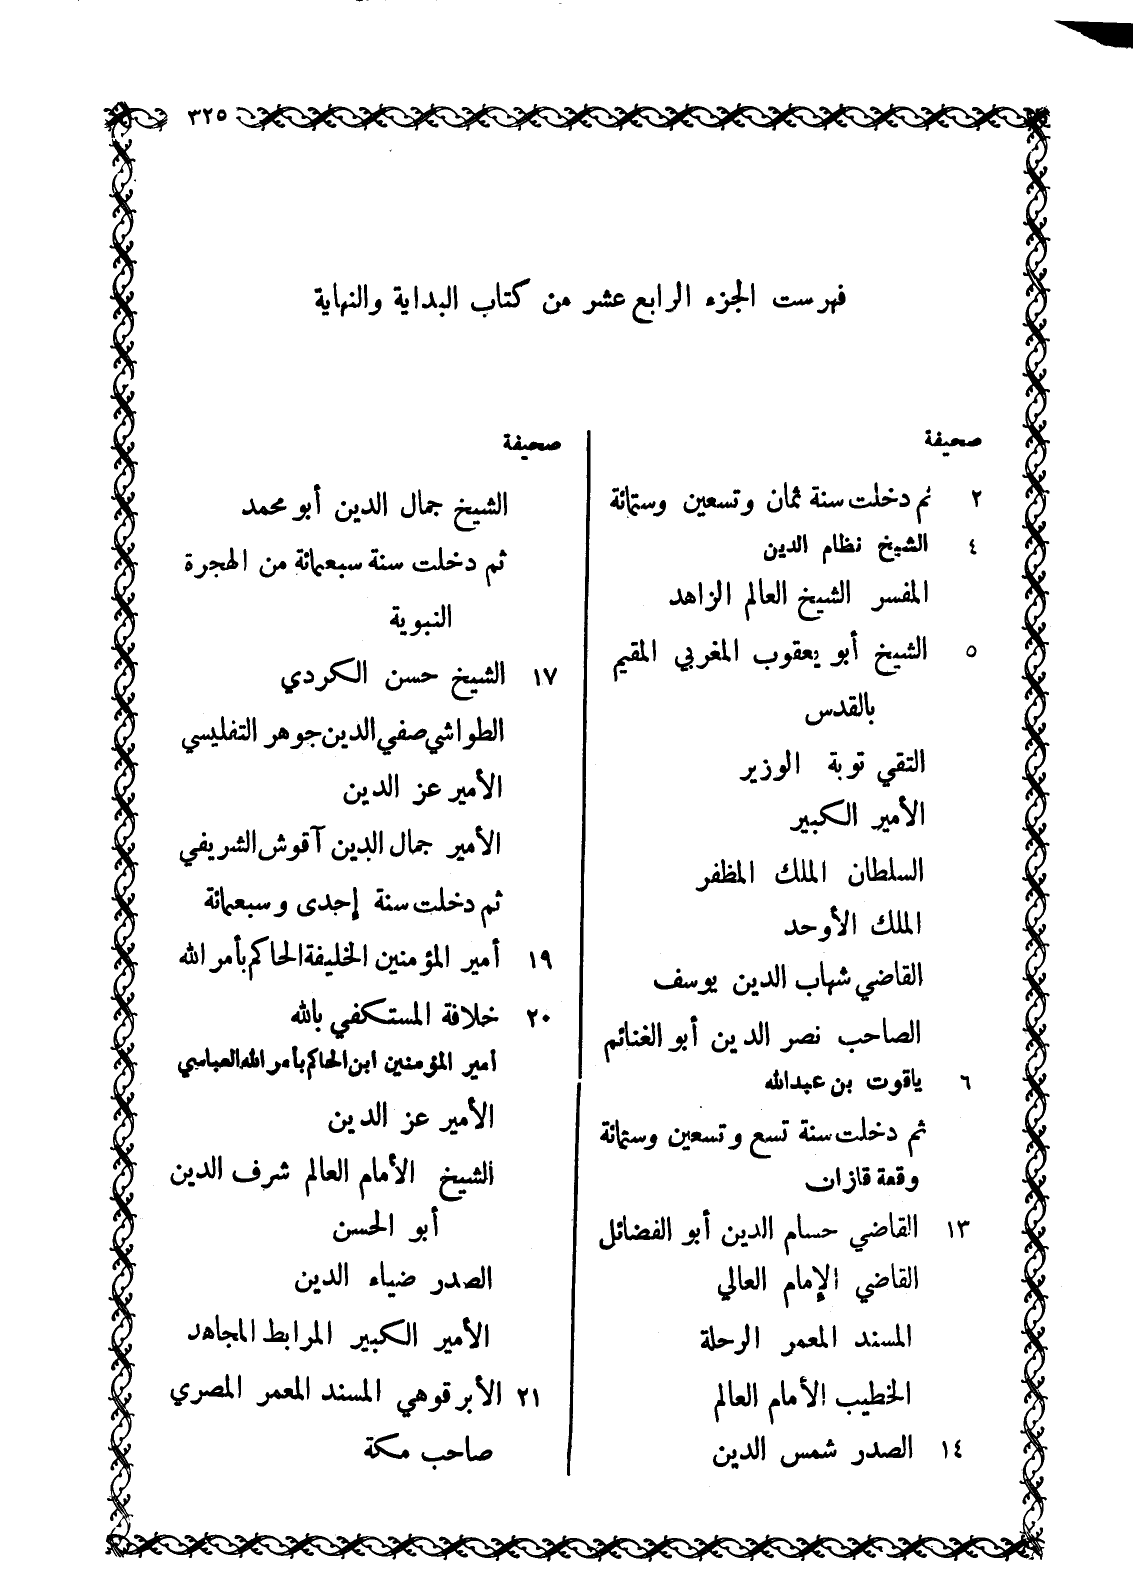 ٣٢٥
فهرست الجزء الرابع عشر من كتاب البداية والنهاية
صحيفة
٢ ثم دخلت سنة ثمان وتسعين وستمائة
٤ الشيخ نظام الدين
المفسر الشيخ العالم الزاهد
٥ الشيخ أبو يعقوب المغربي المقيم
بالقدس
التقي توبة الوزير
الأمير الكبير
السلطان الملك المظفر
الملك الأوحد
القاضي شهاب الدين يوسف
الصاحب نصر الدين أبو الغنائم
٦ ياقوت بن عبدالله
ثم دخلت سنة تسع وتسعين وستمائة
وقعة قازان
١٣ القاضي حسام الدين أبو الفضائل
القاضي الإمام العالي
المسند المعمر الرحلة
الخطيب الأمام العالم
١٤ الصدر شمس الدين
صحيفة
الشيخ جمال الدين أبو محمد
ثم دخلت سنة سبعمائة من الهجرة
النبوية
١٧ الشيخ حسن الكردي
الطواشي صفي الدين جوهر التفليسي
الأمير عز الدين
الأمير جمال الدين آقوش الشريفي
ثم دخلت سنة إحدى وسبعمائة
١٩ أمير المؤمنين الخليفة الحاكم بأمر الله
٢٠ خلافة المستكفي بالله
أمير المؤمنين ابن الحاكم بأمر الله العباسي
الأمير عز الدين
الشيخ الأمام العالم شرف الدين
أبو الحسن
الصدر ضياء الدين
الأمير الكبير المرابط المجاهد
٢١ الأبرقوهي المسند المعمر المصري
صاحب مكة